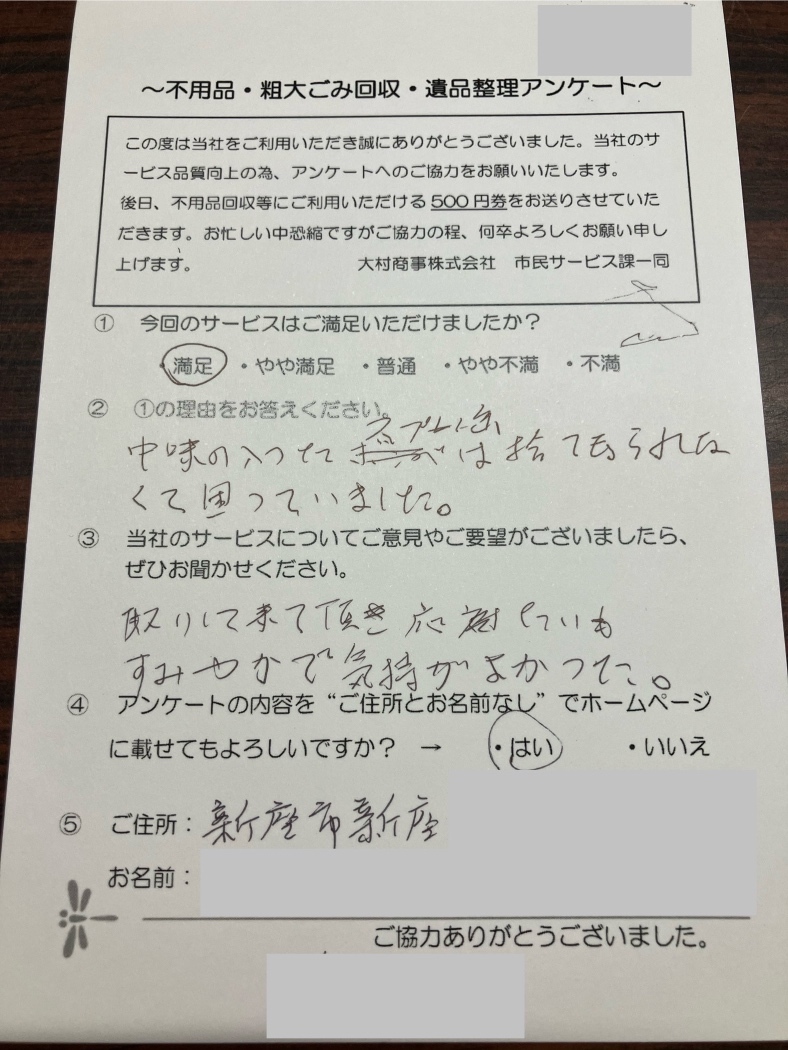 ～不用品・粗大ごみ回収・遺品整理アンケート～
この度は当社をご利用いただき誠にありがとうございました。当社のサ
ービス品質向上の為、アンケートへのご協力をお願いいたします。
後日、不用品回収等にご利用いただける500円券をお送りさせていた
だきます。お忙しい中恐縮ですがご協力の程、何卒よろしくお願い申し
上げます。 大村商事株式会社 市民サービス課一同
① 今回のサービスはご満足いただけましたか？
・満足 ・やや満足 ・普通 ・やや不満 ・不満
② ①の理由をお答えください。
中味の入った スプレー缶は捨てられな
くて困っていました。
③ 当社のサービスについてご意見やご要望がございましたら、
ぜひお聞かせください。
取りして来て頂き応対も
すみやかで気持がよかった。
④ アンケートの内容を“ご住所とお名前なし”でホームページ
に載せてもよろしいですか？ → ・はい ・いいえ
⑤ ご住所：新座市新座
お名前：
ご協力ありがとうございました。